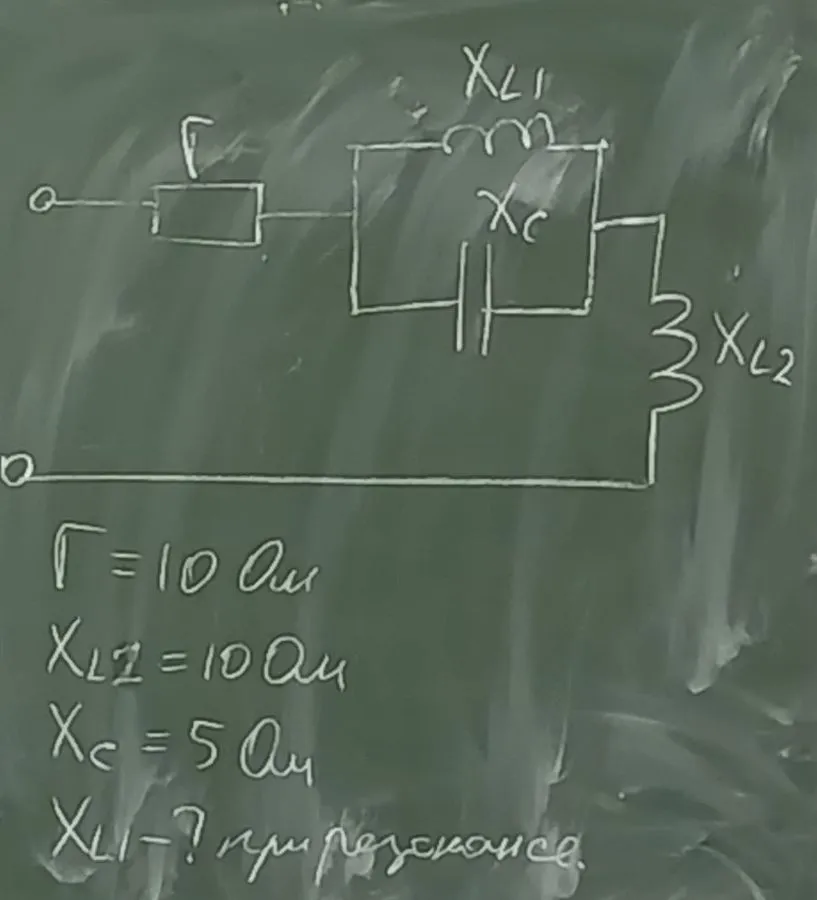 X_L1
r
X_C
X_L2
r = 10 Ом
X_L2 = 10 Ом
X_C = 5 Ом
X_L1 - ? при резонансе.